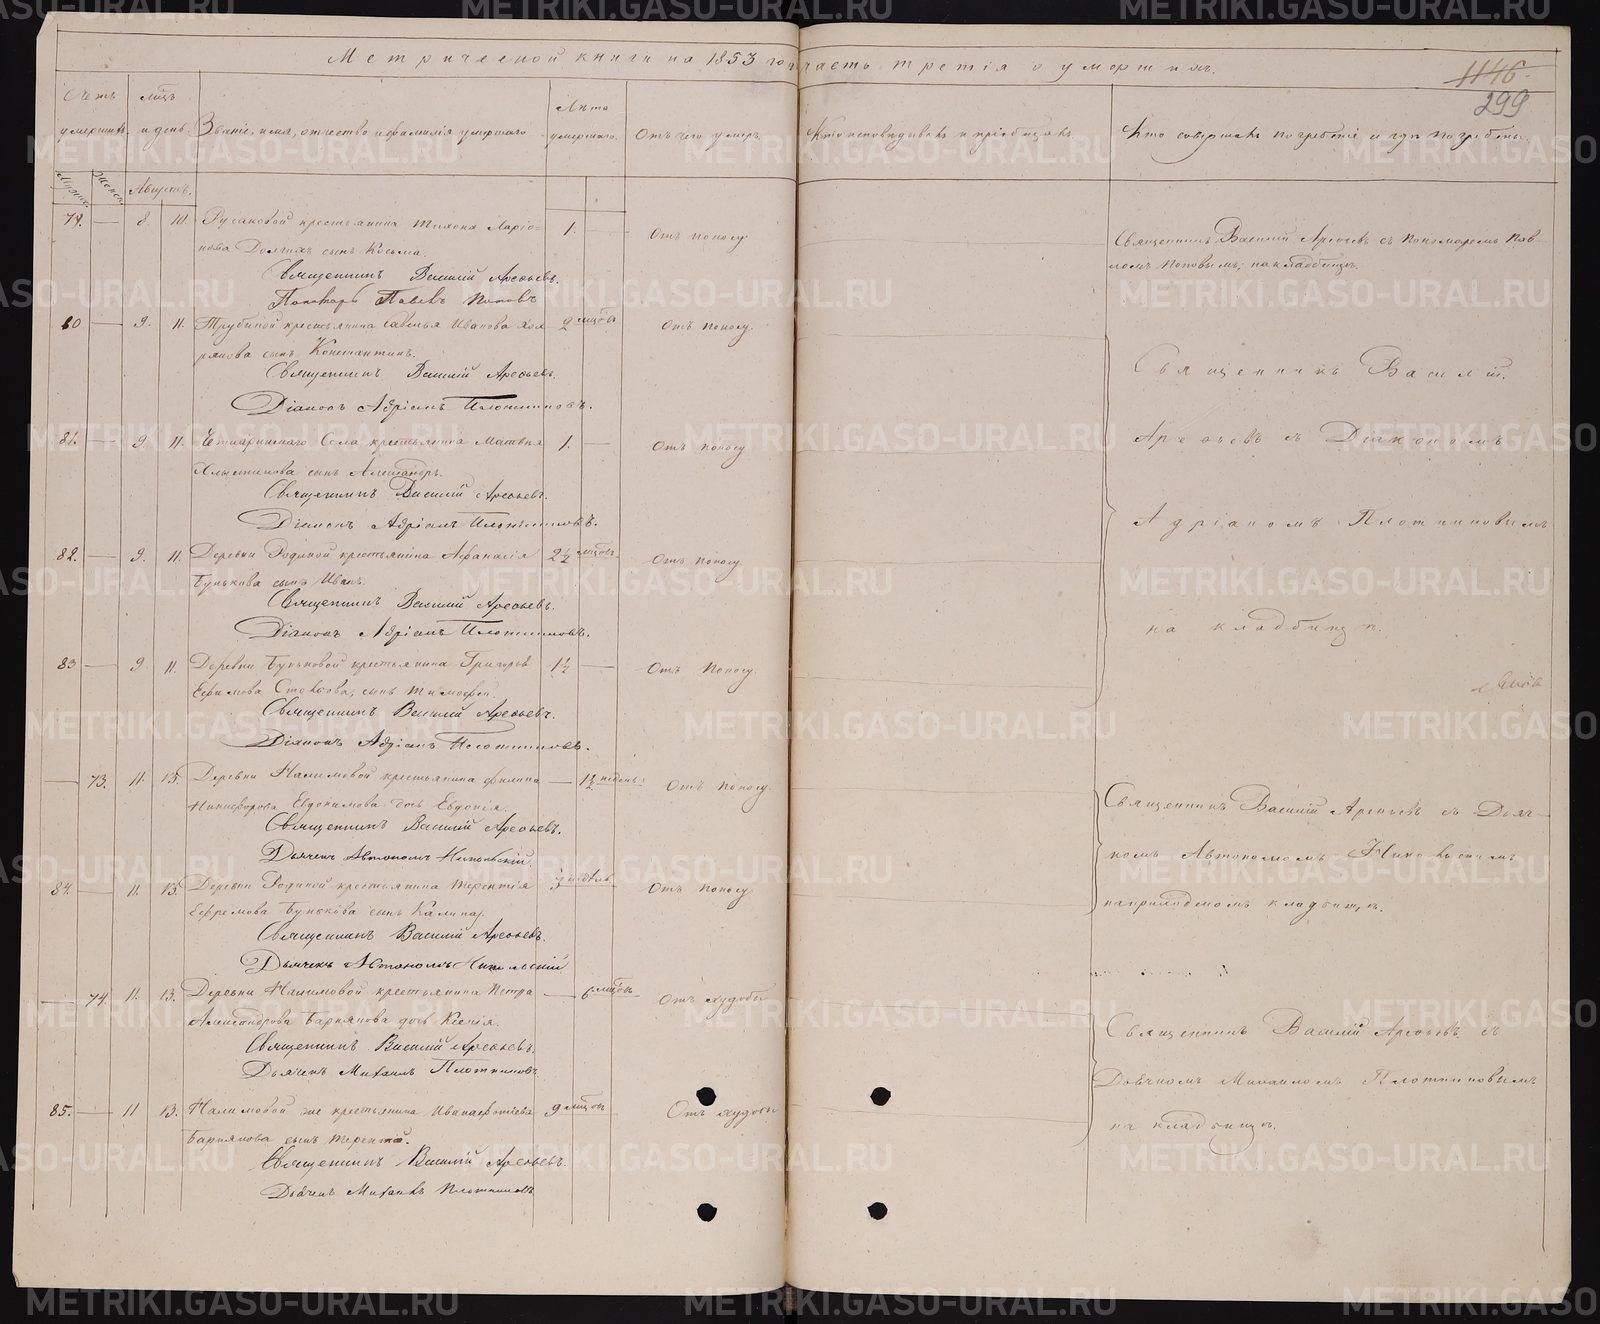 Метрической книги на 1853 год часть третія о умершихъ.
1146
299
Счетъ умершихъ
Мѣсяцъ и день
Званіе, имя, отчество и фамилія умершаго
Лѣта умершаго.
Отъ чего умеръ
Кто исповѣдывалъ и пріобщалъ
Кто совершалъ погребеніе и гдѣ погребены
Августъ.
79. — 8 10. крестьянина Тихона Ларіо- 1. Отъ поносу
нова Долгихъ сынъ Косьма.
Священникъ Василій Арефьевъ.
Пономарь Павелъ Поповъ
Священникъ Василій Арефьевъ съ Пономаремъ Пав-
ломъ Поповымъ, на кладбищѣ.
80 — 9. 11. Трубиной крестьянина Савелья Иванова 2 мѣсяцовъ Отъ поносу.
сынъ Константинъ.
Священникъ Василій Арефьевъ.
Діаконъ Адріанъ Плотниковъ.
81. — 9 11. Села крестьянина Матвѣя 1. — Отъ поносу
сынъ Александръ.
Священникъ Василій Арефьевъ.
Діаконъ Адріанъ Плотниковъ.
82. — 9. 11. Деревни Родиной крестьянина Афанасія 2 1/2 мѣсяцовъ Отъ поносу
Бунькова сынъ Иванъ.
Священникъ Василій Арефьевъ.
Діаконъ Адріанъ Плотниковъ.
83 — 9 11. Деревни Буньковой крестьянина Григорья 1 1/2 — Отъ поносу.
Ефимова сынъ Тимофей.
Священникъ Василій Арефьевъ.
Діаконъ Адріанъ Плотниковъ.
Священникъ Василій.
Арефьевъ съ Діакономъ
Адріаномъ Плотниковымъ
на кладбищѣ.
— 73. 11. 13. Деревни Налимовой крестьянина Филипа — 1 1/2 недель Отъ поносу.
Никифорова Евдокимова дочь Евдокія.
Священникъ Василій Арефьевъ.
Дьячекъ Автономъ Никольскій.
84. — 11. 13. Деревни Родиной крестьянина Терентія недѣль Отъ поносу
Ефремова Бунькова сынъ Каллиникъ.
Священникъ Василій Арефьевъ.
Дьячекъ Автономъ Никольскій
Священникъ Василій Арефьевъ съ Дьяч-
комъ Автономомъ Никольскимъ
на приходскомъ кладбищѣ.
— 74. 11. 13. Деревни Налимовой крестьянина Петра — 6 мѣсяцовъ Отъ худобы
Александрова Барнякова дочь Ксенія.
Священникъ Василій Арефьевъ.
Дьячекъ Михаилъ Плотниковъ.
85. — 11 13. Налимовой же крестьянина Ивана 9 мѣсяцовъ Отъ худобы
Барнякова сынъ Терентій.
Священникъ Василій Арефьевъ.
Дьячекъ Михаилъ Плотниковъ
Священникъ Василій Арефьевъ съ
Дьячкомъ Михаиломъ Плотниковымъ
на кладбищѣ.
METRIKI.GASO-URAL.RU